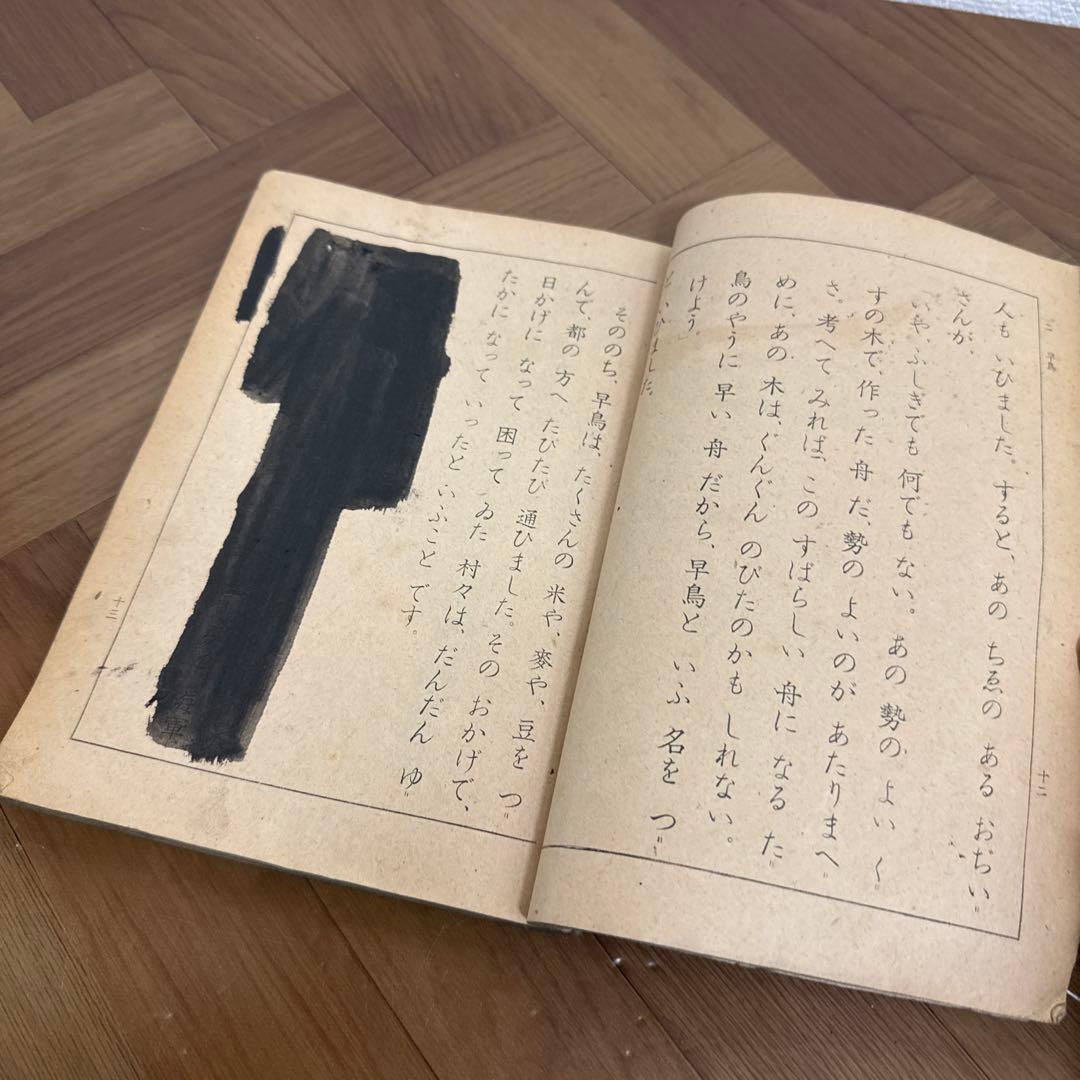 二 早鳥
十二
人も いひました。すると、あの ちゑの ある おぢい〃
さんが、
「いや、ふしぎでも 何でも ない。あの 勢の よい く〃
すの木で、作った 舟 だ、勢の よいのが あたりまへ〃
さ。考へて みれば、この すばらしい 舟に なる た〃
めに、あの 木は、ぐんぐん のびたのかも しれない。
鳥のやうに 早い 舟 だから、早鳥と いふ 名を つ〃
けよう。」
と いひました。
そののち、早鳥は、たくさんの 米や、麥や、豆を つ〃
んで、都の 方へ たびたび 通ひました。その おかげで、
日かげに なって 困って ゐた 村々は、だんだん ゆ〃
たかに なって いったと いふこと です。
海軍
十三